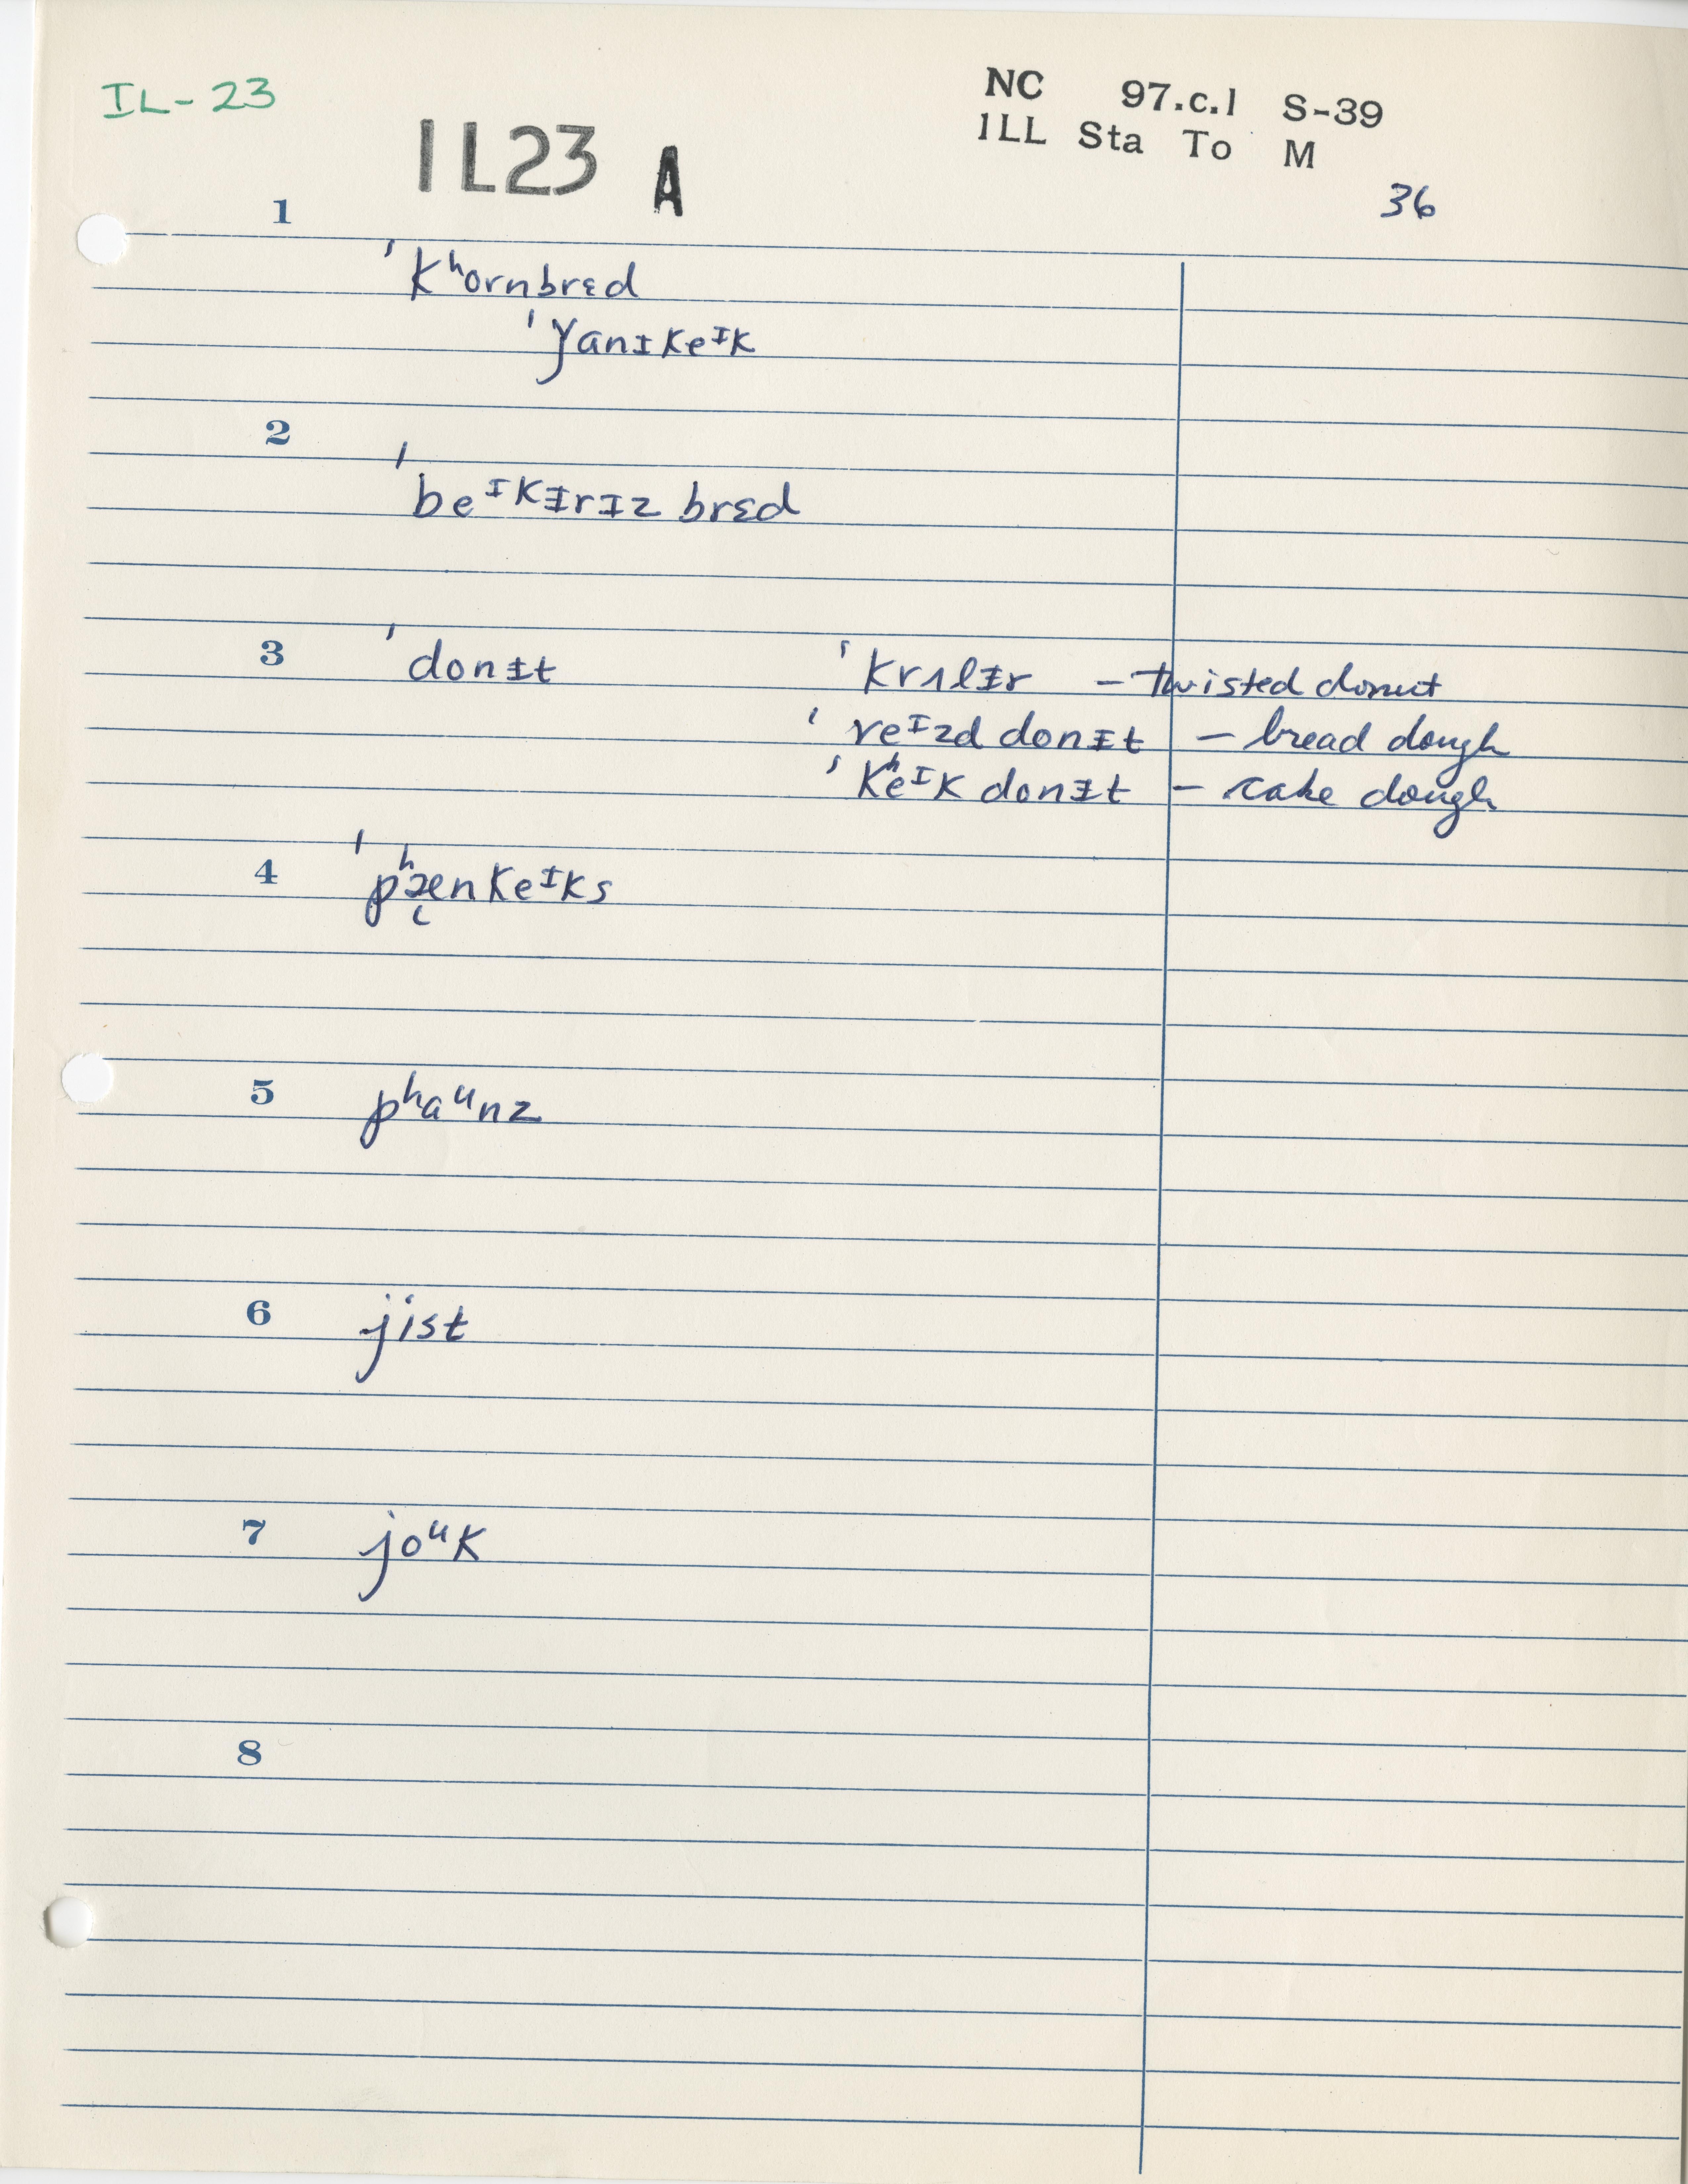 IL-23
NC 97.c.1 S-39
ILL Sta To M
IL23 A
36
1
ˈkʰornbrɛd
ˈǰanɪkeᶦk
2
ˈbeᶦkɨrɨz brɛd
3 ˈdonɨt ˈkrʌlɨr – twisted donut
ˈreᶦzd donɨt – bread dough
ˈkʰeᶦk donɨt – cake dough
4 ˈpʰæ̨nkeᶦks
5 pʰaᵘnz
6 jist
7 joᵘk
8